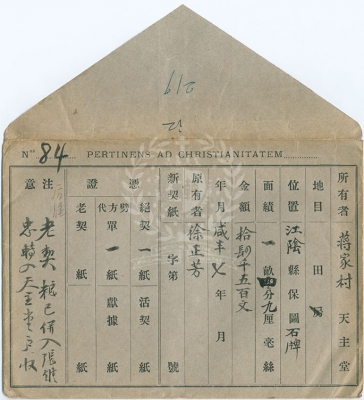 219
12
Nº 84 PERTINENS AD CHRISTIANITATEM
所有者 蔣家村 天主堂
地目 田
位置 江陰縣保圖石牌
面積 一畝四分九厘毫絲
金額 拾肆千五百文
年月 咸丰七年 月
原有者 徐正芳
新契紙 字第 號
憑證
絕契 一 紙 活契 紙
代方劈單 一 紙 獻據 紙
老契 紙
注意
老契粮已併入張維